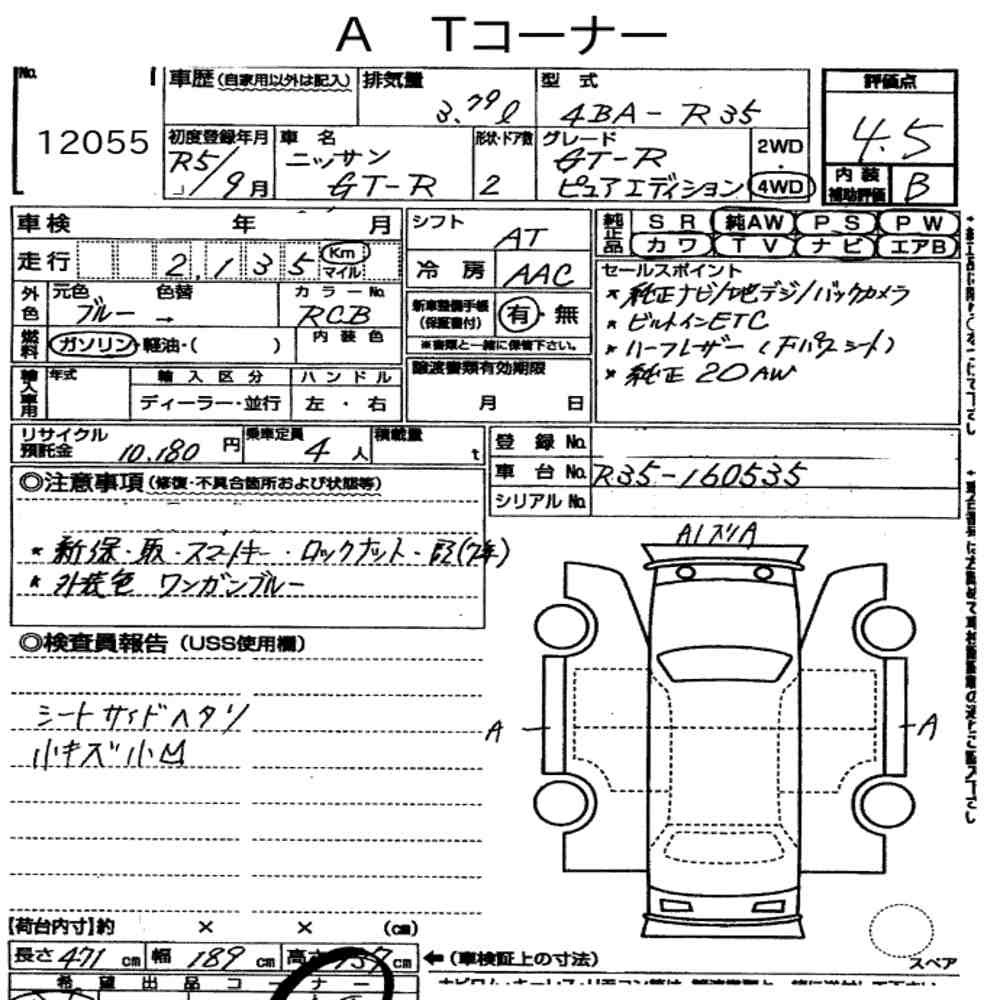 A Tコーナー
No. 12055
車歴(自家用以外は記入) 排気量 3.79ℓ 型式 4BA-R35
評価点 4.5
初度登録年月 R5/9月 車名 ニッサン GT-R 形状・ドア数 2 グレード GT-R ピュアエディション 2WD・4WD
内装補助評価 B
車検 年 月
走行 2,135 Km マイル
シフト AT
冷房 AAC
純正品 SR 純AW PS PW
カワ TV ナビ エアB
外色 元色 ブルー → 色替 カラーNo. RCB
燃料 ガソリン・軽油・( ) 内装色
新車整備手帳(保証書付) 有・無
※書類と一緒に保管下さい。
セールスポイント
* 純正ナビ/地デジ/バックカメラ
* ビルトインETC
* ハーフレザー(F.パワーシート)
* 純正20AW
輸入車用 年式 輸入区分 ハンドル
ディーラー・並行 左・右
譲渡書類有効期限
月 日
リサイクル預託金 10,180円 乗車定員 4人 積載量 t
登録No.
車台No. R35-160535
シリアルNo.
◎注意事項(修復・不具合箇所および状態等)
* 新保・取・スマートキー・ロックナット・記(7年)
* 外装色 ワンガンブルー
◎検査員報告(USS使用欄)
シートサイドヘタリ
小キズ小凹
A1 スリA
A
A
スペア
【荷台内寸】約 × × (cm)
長さ 471 cm 幅 189 cm 高さ 137 cm ←(車検証上の寸法)
希望出品コーナー